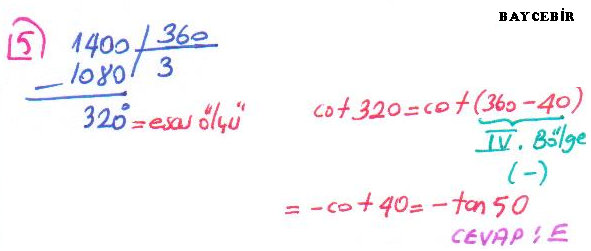 BAYCEBİR
5
1400 | 360
- 1080 3
320° = esas ölçü
cot 320 = cot (360 - 40)
IV. Bölge
(-)
= -cot 40 = -tan 50
CEVAP: E